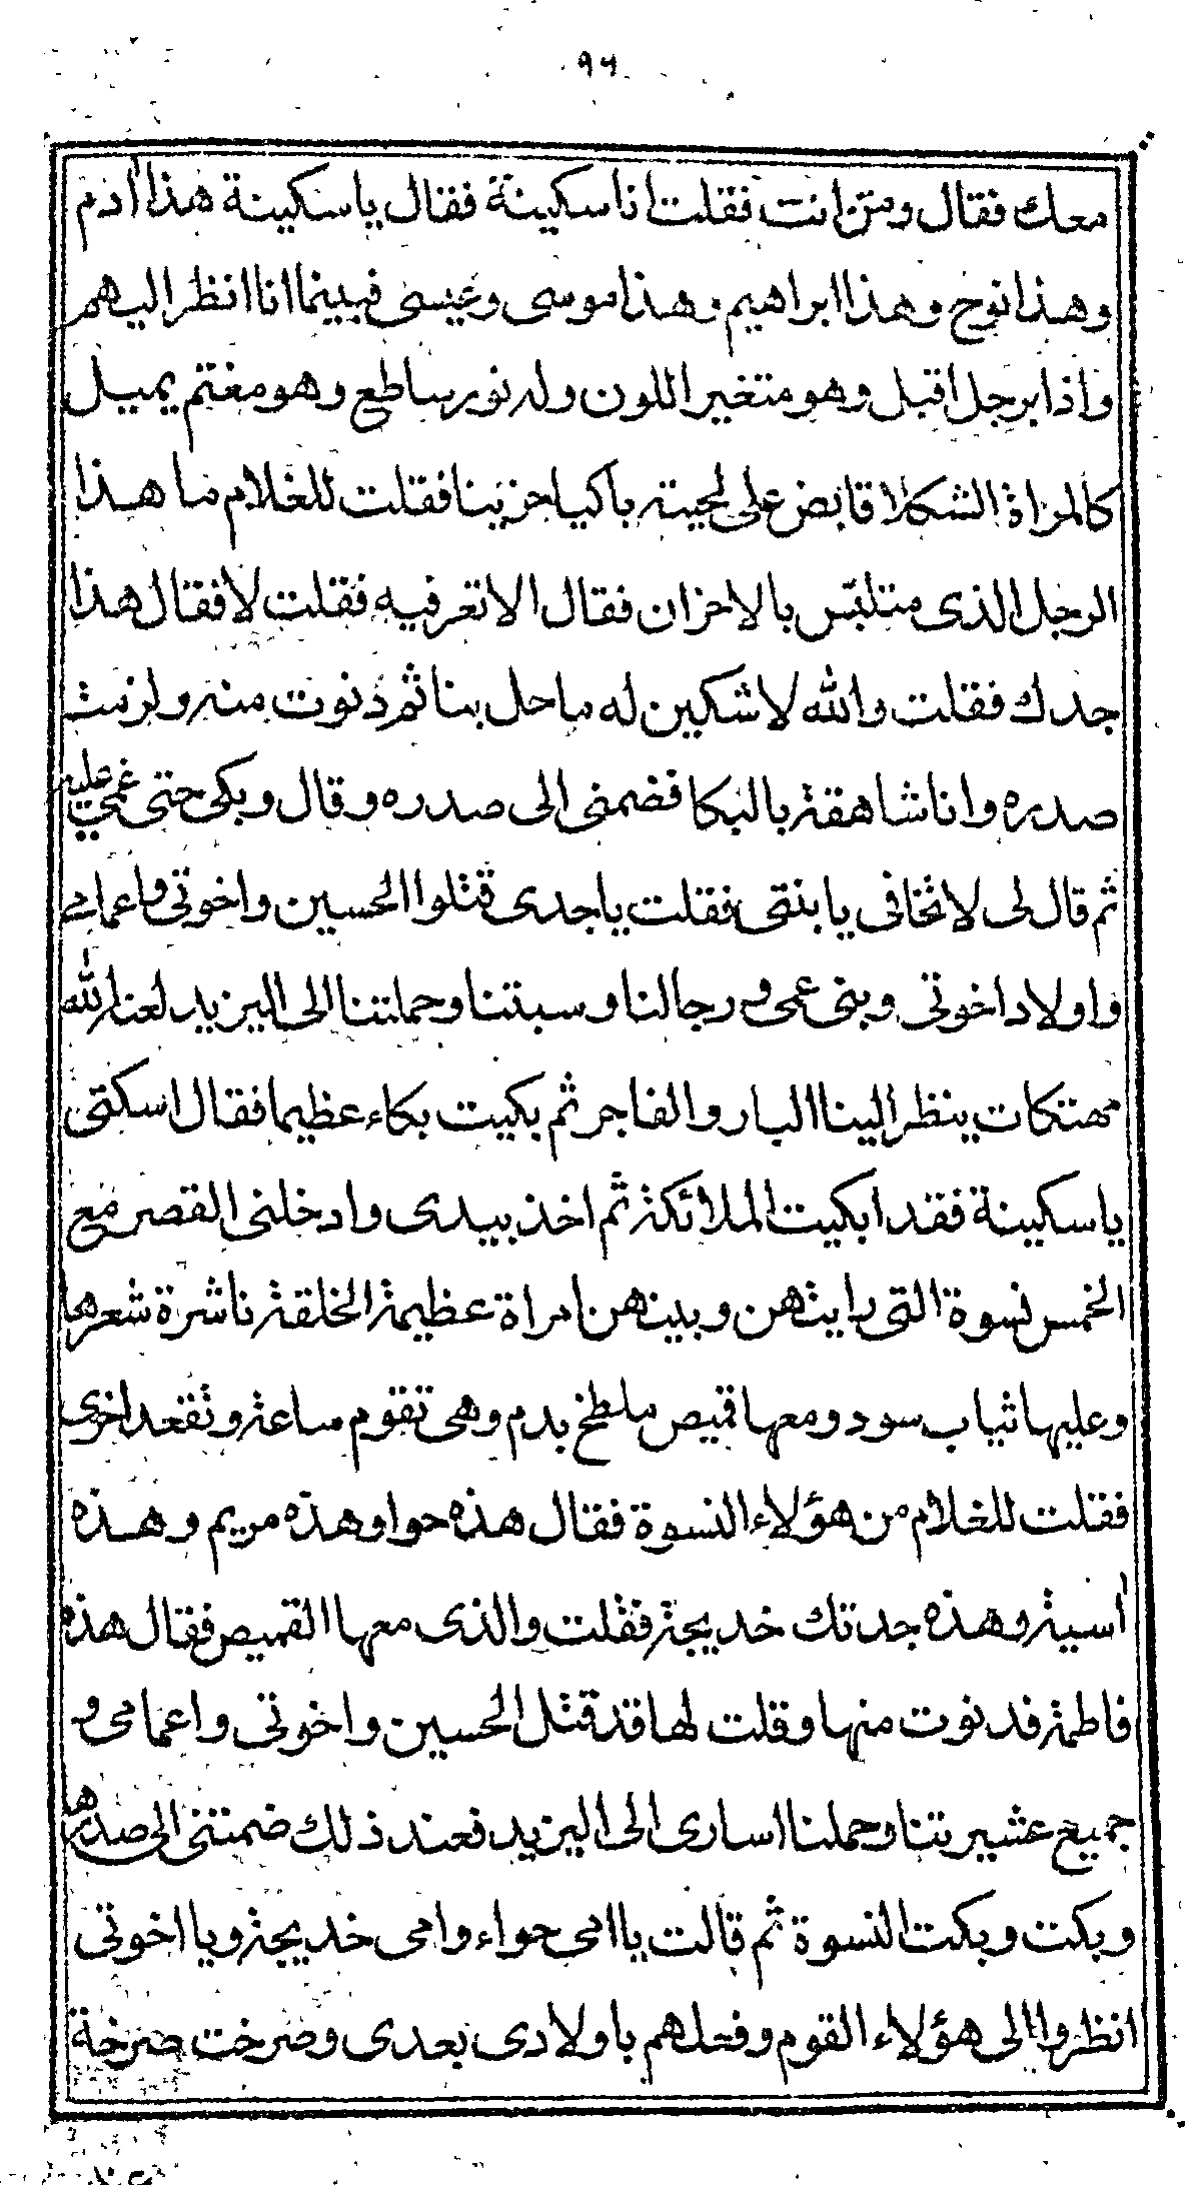 ٩٦
معك فقال ومن انت فقلت انا سكينة فقال يا سكينة هذا آدم
وهذا نوح وهذا ابراهيم وهذا موسى وعيسى فبينما انا انظر اليهم
واذا برجل اقبل وهو متغير اللون وله نور ساطع وهو مغتم يميل
كالمراة الثكلا قابض على لحيته باكيا حزينا فقلت للغلام ما هذا
الرجل الذى متلبّس بالاحزان فقال الا تعرفيه فقلت لا فقال هذا
جدك فقلت والله لاشكين له ما حل بنا ثم دنوت منه ولزمت
صدره وانا شاهقة بالبكا فضمنى الى صدره وقال وبكى حتى غمي عليه
ثم قال لى لا تخافى يا بنتى فقلت يا جدى قتلوا الحسين واخوتى واعمامى
واولاد اخوتى وبنى عمى ورجالنا وسبتنا وحملتنا الى اليزيد لعنه الله
مهتكات ينظر الينا البار والفاجر ثم بكيت بكاء عظيما فقال اسكتى
يا سكينة فقد ابكيت الملائكة ثم اخذ بيدى وادخلنى القصر مع
الخمس نسوة التى رايتهن وبينهن امراة عظيمة الخلقة ناشرة شعرها
وعليها ثياب سود ومعها قميص ملطخ بدم وهى تقوم ساعة وتقعد اخرى
فقلت للغلام من هؤلاء النسوة فقال هذه حوا وهذه مريم وهذه
آسية وهذه جدتك خديجة فقلت والذى معها القميص فقال هذه
فاطمة فدنوت منها وقلت لها قد قتل الحسين واخوتى واعمامى و
جميع عشيرتنا وحملنا اسارى الى اليزيد فعند ذلك ضمتنى الى صدرها
وبكت وبكت النسوة ثم قالت يا امى حواء وامى خديجة ويا اخوتى
انظروا الى هؤلاء القوم وفعلهم باولادى بعدى وصرخت صرخة